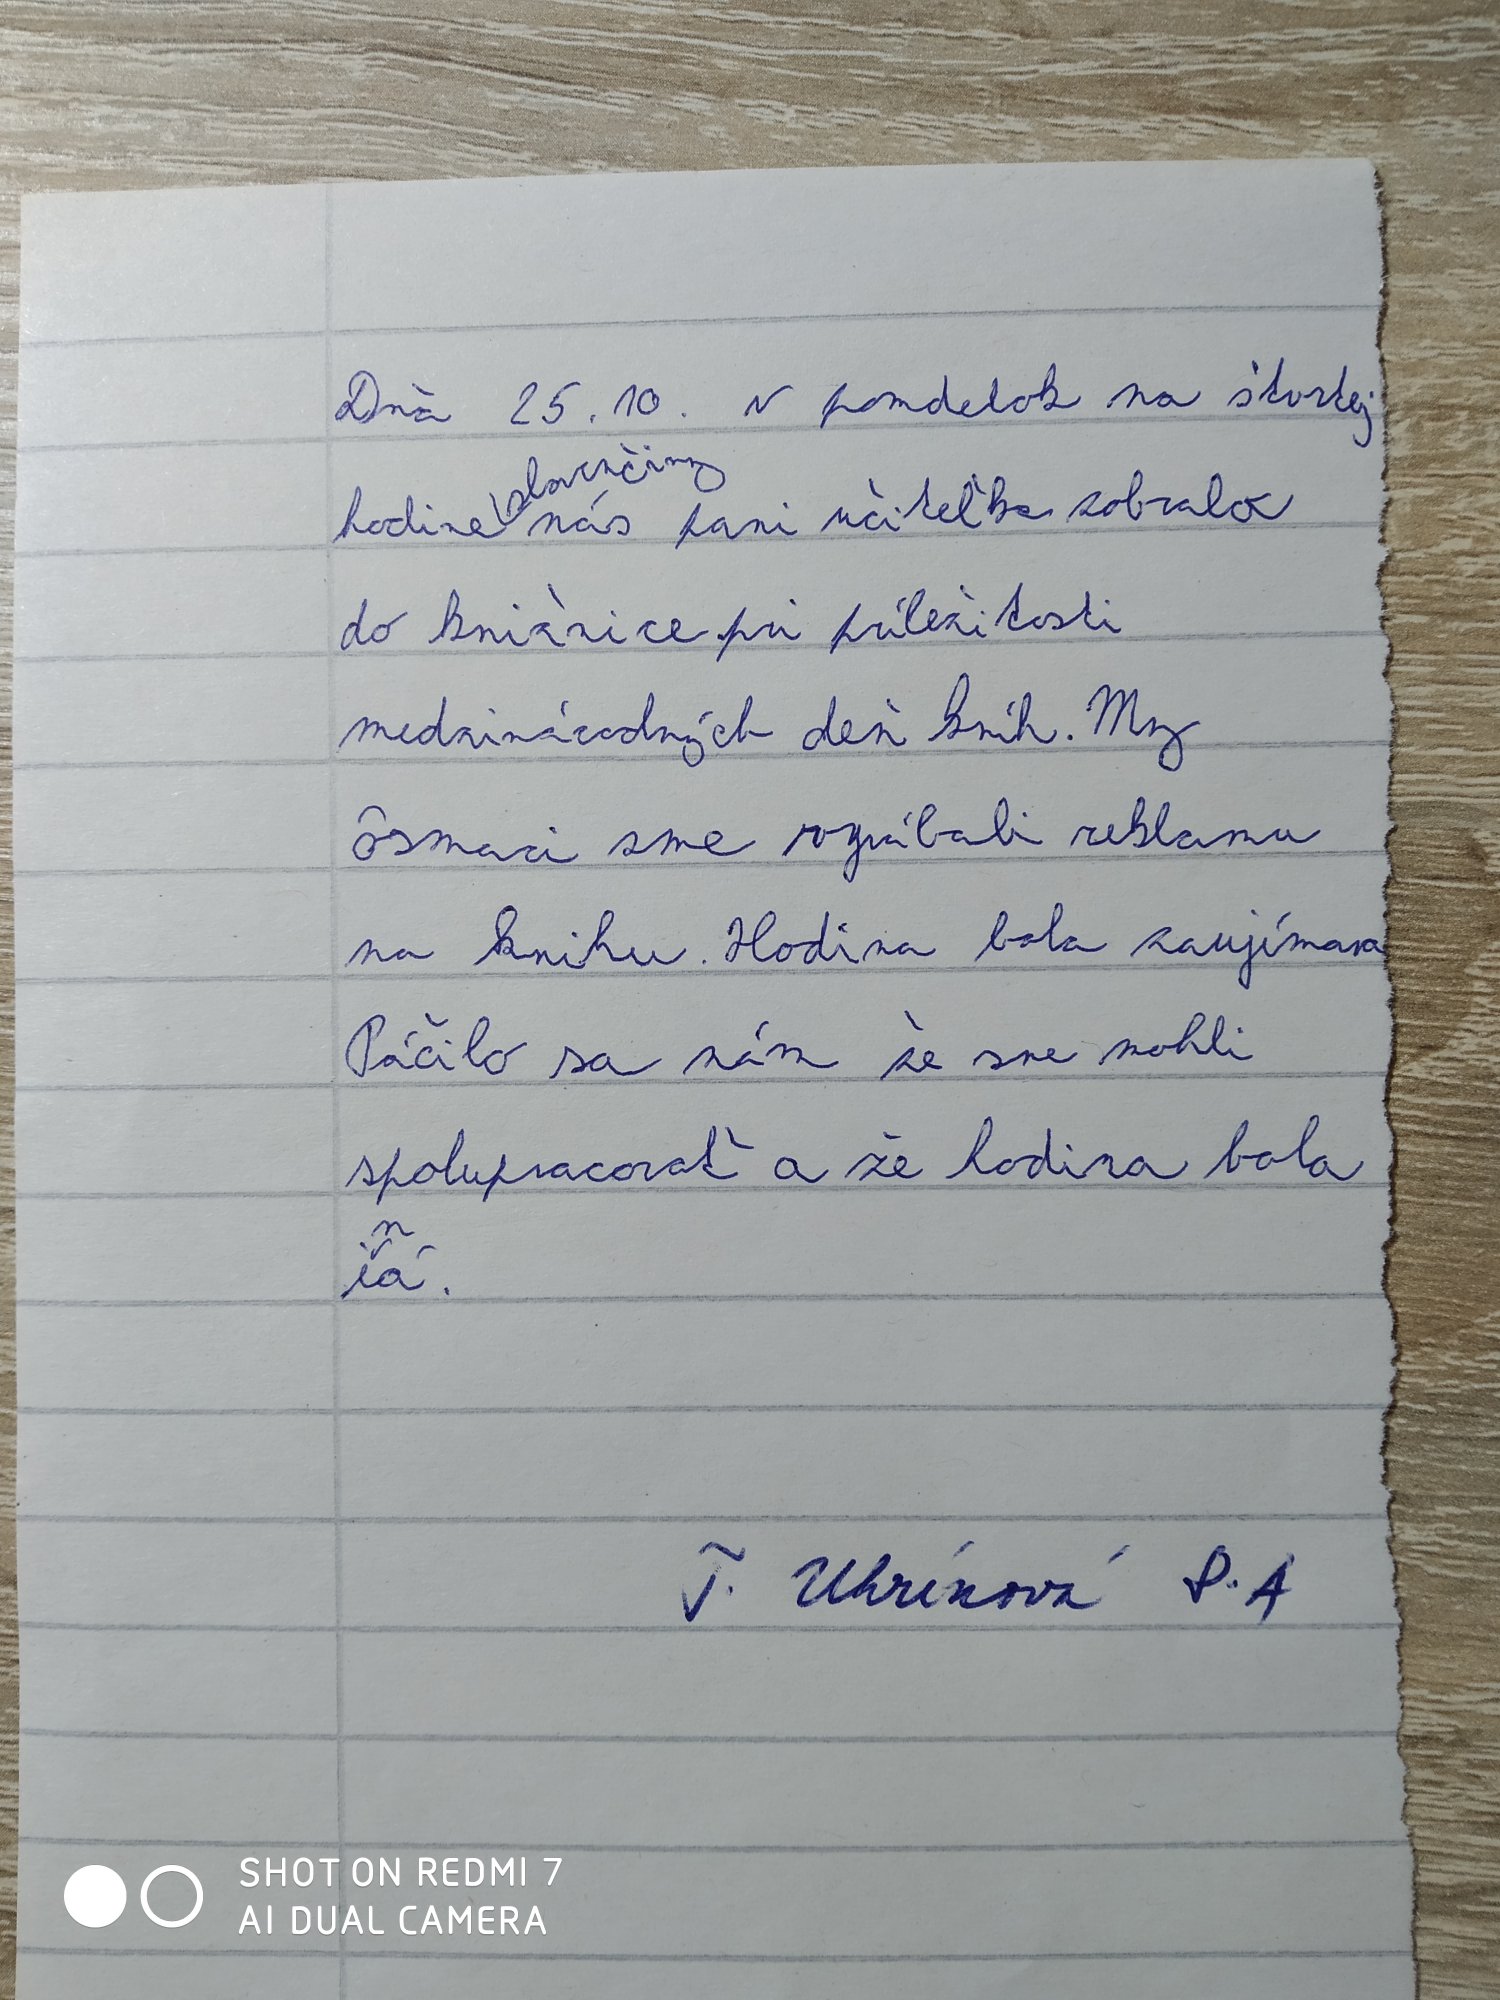 Dňa 25.10. v pomdelok na štvrtej
hodine slovenčiny nás pani učiteľka zobrala
do knižnice pri príležitosti
medzinárodných deň kníh. My
ôsmaci sme vyrábali reklamu
na knihu. Hodina bola zaujímava
Páčilo sa nám že sme mohli
spolupracovať a že hodina bola
iná.
T. Uhrínová 8.A
SHOT ON REDMI 7
AI DUAL CAMERA